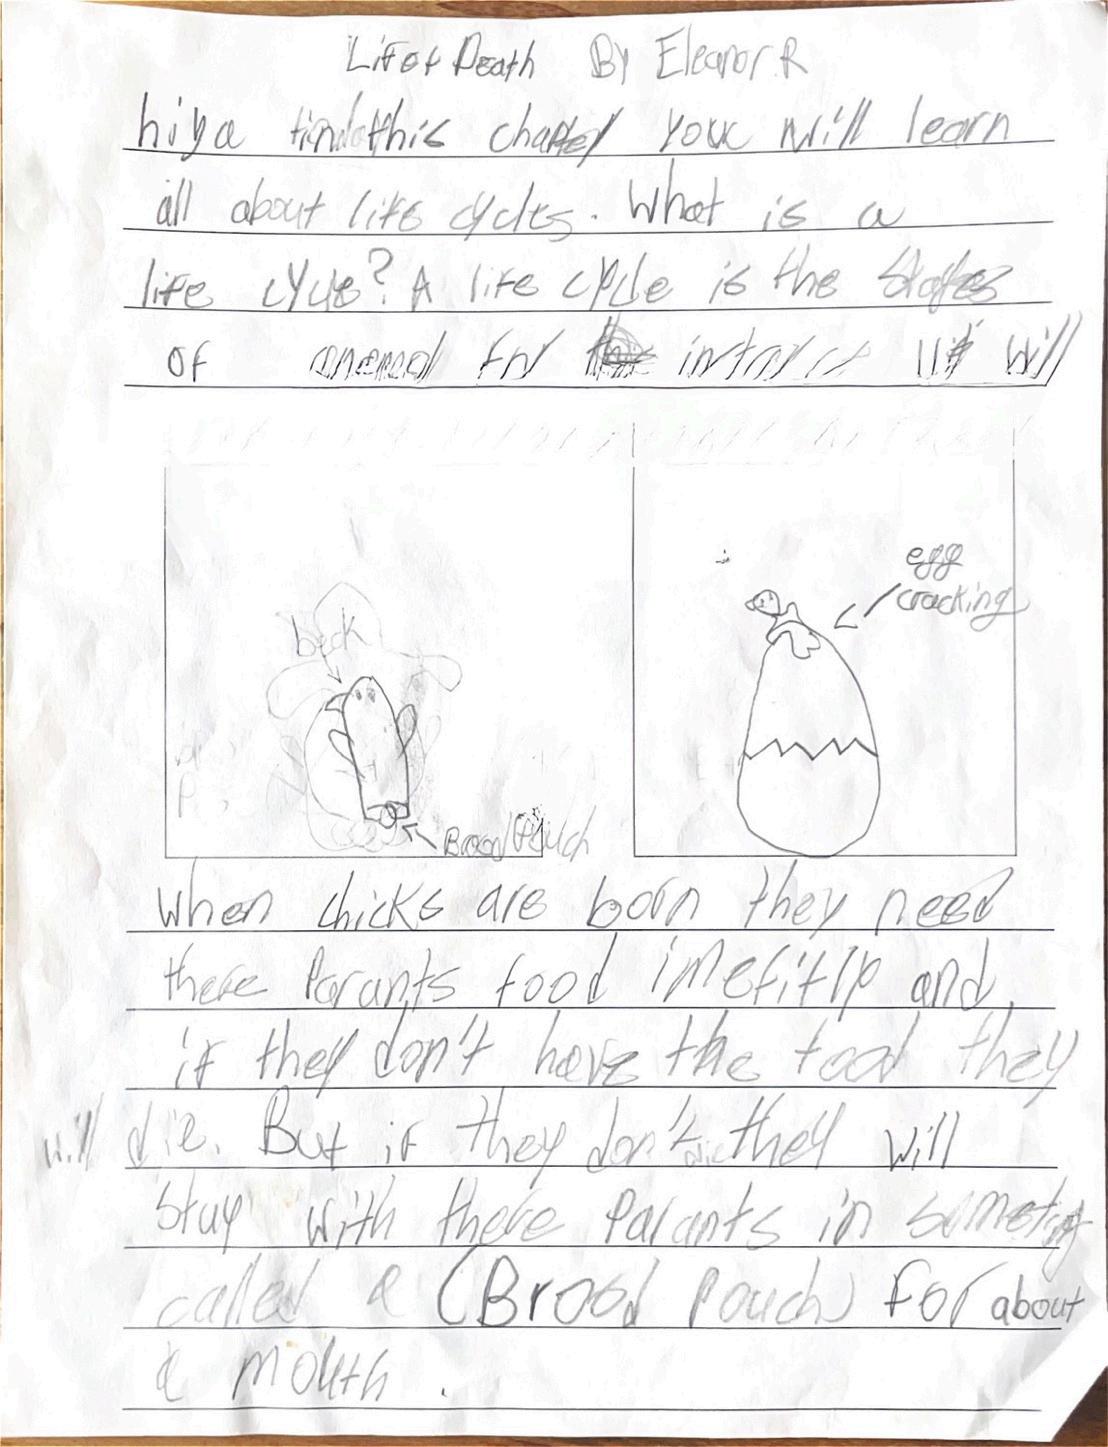 Life of Death By Eleanor R
hiya this chapter you will learn
all about life cycles. What is a
life cycle? A life cycle is the stages
of will
beck
Brood Pouch
egg
cracking
When chicks are born they need
there Parants food imefitlp and
if they don't have the food they
will die. But if they don't die they will
stay with there Parants in
called a (Brood Pouch) for about
a month.